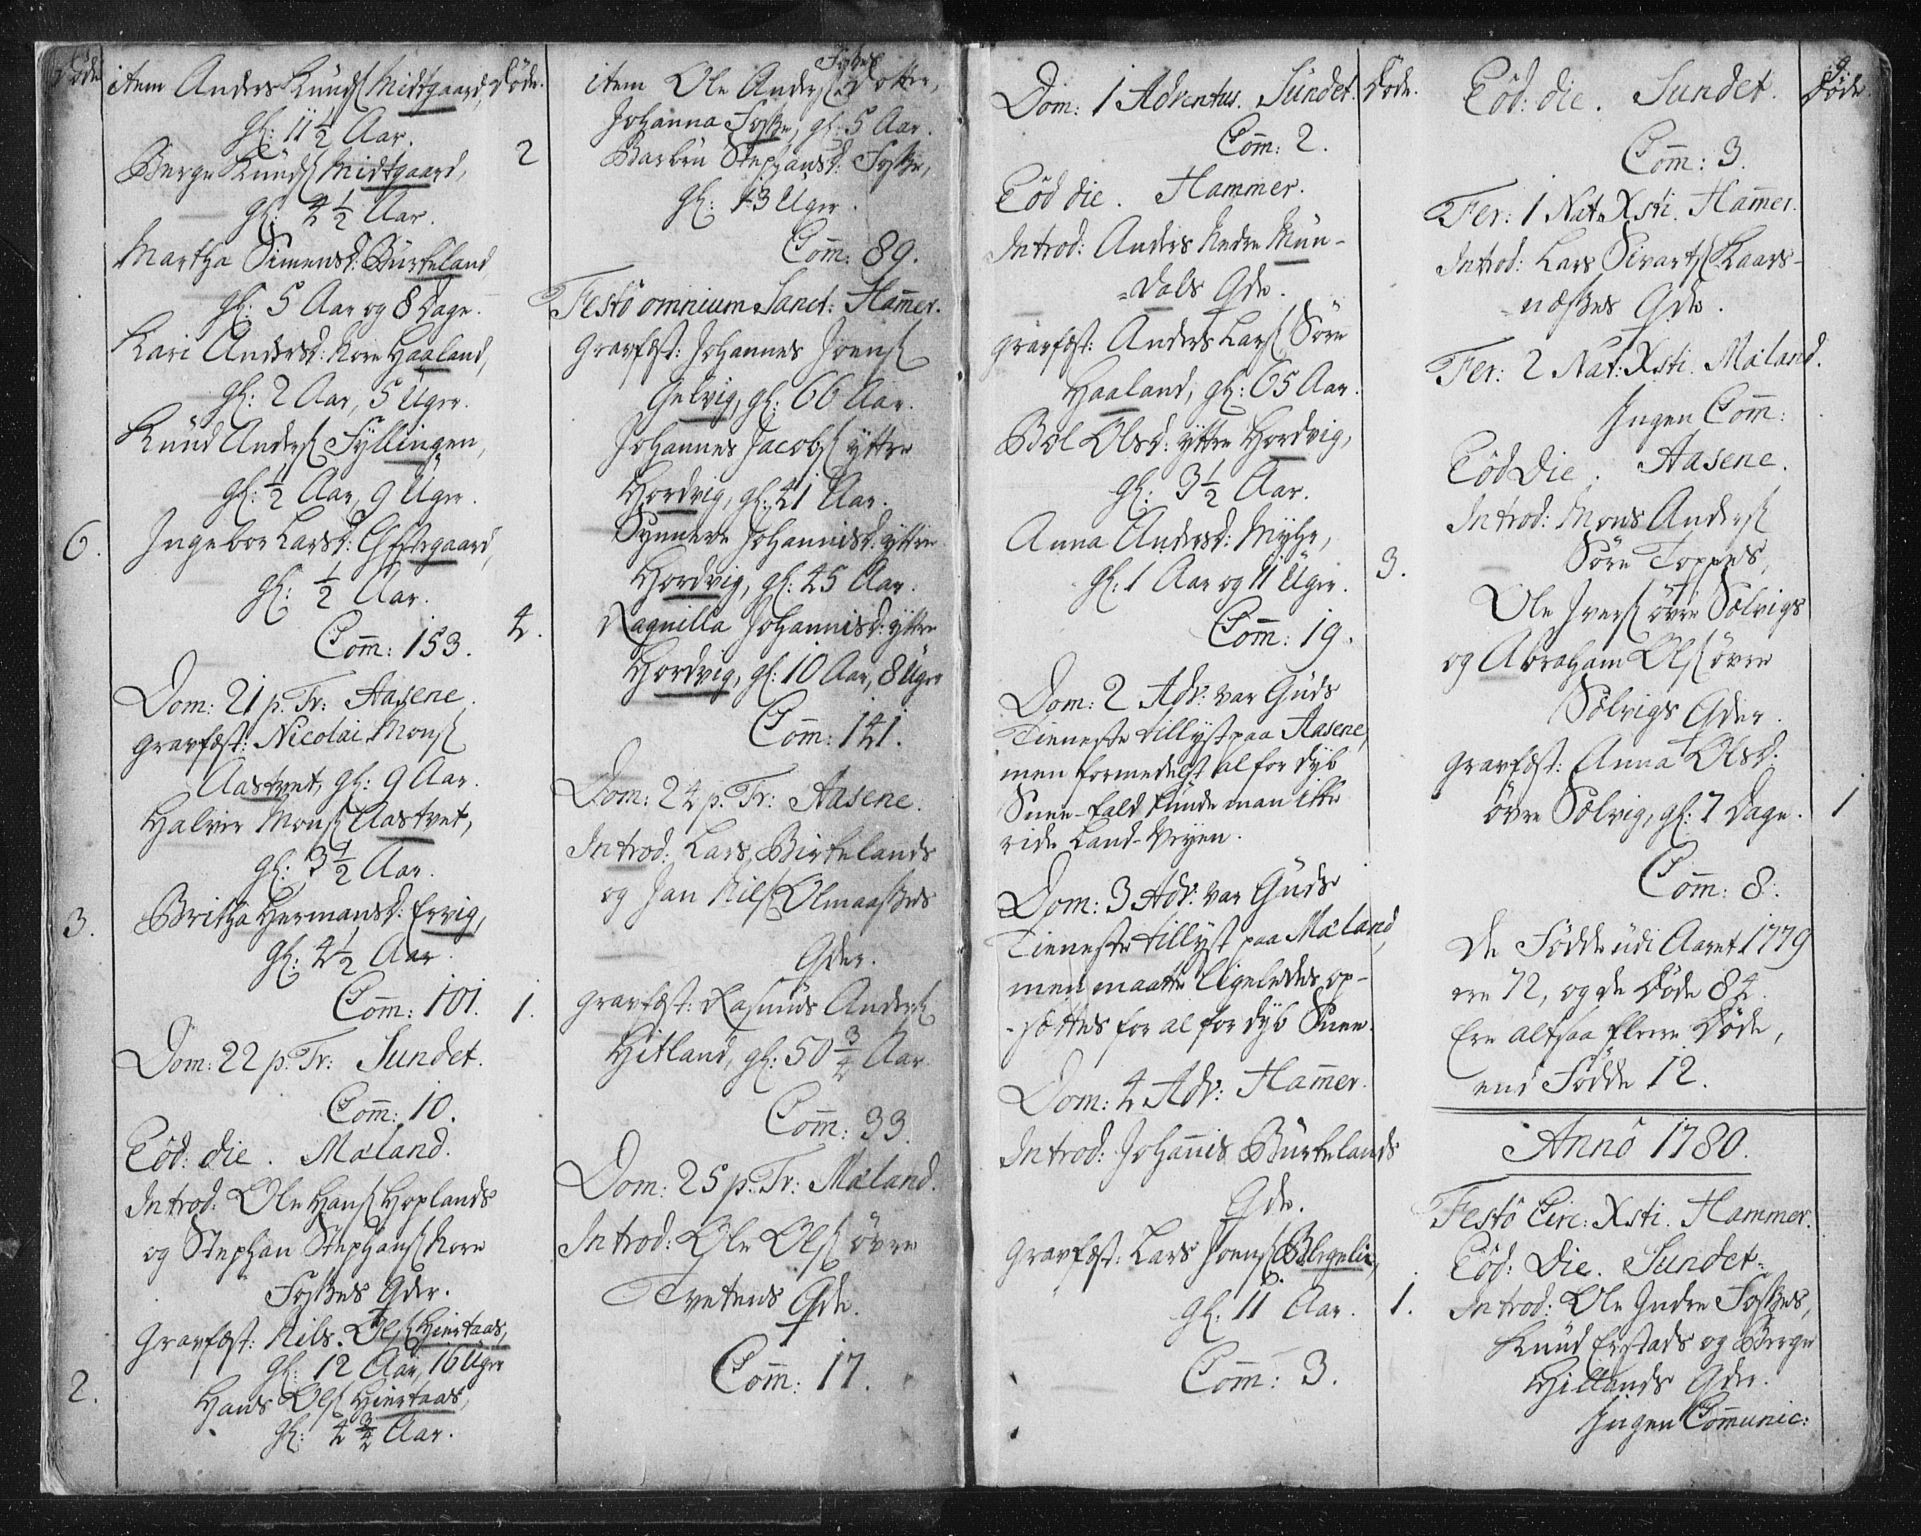 Døde
item Anders Knuds[søn] Midtgaard,
gl: 11 1/2 Aar.
Børge Knuds[søn] Midtgaard,
gl: 4 1/2 Aar.
Martha Simensd: Bürkeland
gl: 5 Aar og 8 Dage.
Kari Andersd: Nore Haaland,
gl: 2 Aar, 5 Uger.
Knud Anders[søn] Fÿllingen,
gl: 1/2 Aar, 9 Uger.
6. Ingebor Larsd: Eftergaard,
gl: 1/2 Aar.
Com̄: 153.
Dom: 21 p. Tr: Aasene.
gravfæst: Nicolai Mons[søn]
Aastvet, gl: 9 Aar.
Halver Mons[søn] Aastvet,
gl: 3 1/2 Aar.
3. Britha Hermansd: Ervig,
gl: 4 1/2 Aar.
Com̄: 101.
Dom: 22 p. Tr: Sundet.
Com̄: 10.
Eod: die. Mæland.
Introd: Ole Hans[søn] Hoplands
og Stephan Stephans[søn] Nore
Foskes Qder.
gravfæst: Nils Ols[søn] Hiertaas,
gl: 12 Aar, 16 Uger
2. Hans Ols[søn] Hiertaas,
gl: 4 3/4 Aar.
Døde.
Foskes
item Ole Anders[søn] Dotter,
Johanna Foske, gl: 5 Aar.
2 Barbru Stephansd: Foske,
gl: 13 Uger.
Com̄: 89.
Festo omnium Sanct: Ham̄er.
gravfæst: Johannes Joens[søn]
Gelvig, gl: 66 Aar.
Johannes Jacobs[søn] ÿttre
Hordvig, gl: 41 Aar.
Synneve Johannisd: ÿttre
Hordvig, gl: 45 Aar.
4. Ragnilla Johannisd: ÿttre
Hordvig, gl: 10 Aar, 8 Uger
Com̄: 141.
Dom: 24 p. Tr: Aasene.
Introd: Lars Birkelands
og Jan Nils[søn] Olmaaskes
Qder.
1. gravfæst: Rasmus Anders[søn]
Hitland, gl: 50 3/4 Aar.
Com̄: 33.
Dom: 25 p. Tr: Mæland.
Introd: Ole Ols[søn] övre
Tvetens Qde.
Com̄: 17.
Dom: 1 Adventus. Sundet.
Com̄: 2.
Eod die. Hammer.
Introd: Anders Nedre Mün-
=dals Qde.
gravfæst: Anders Lars[søn] Søre
Haaland, gl: 65 Aar.
Böl Olsd: ÿttre Hordvig,
gl: 3 1/2 Aar.
Anna Andersd: Mÿhr,
gl: 1 Aar og 11 Uger.
Com̄: 19.
Dom: 2 Adv: var Guds
Tieneste tillÿst paa Aasene,
men formedelst al for dÿb
Snee-fald kunde man ikke
ride Land-Veÿen.
Dom: 3 Adv: var Guds
Tieneste tillÿst paa Mæland,
men maatte ligeledes op-
-sættes for al for dÿb Snee.
Dom: 4 Adv: Ham̄er.
Introd: Johan̄is Bürkelands
Qde.
gravfæst: Lars Joens[søn]
gl: 11 Aar.
Com̄: 3.
Døde.
3.
1.
Eod: die. Sundet.
Com̄: 3.
Fer: 1 Nat: Xsti. Ham̄er.
Introd: Lars Sivarts[søn] Kaars-
-næsses Qde.
Fer: 2 Nat: Xsti. Mæland.
Ingen Com̄:
Eod Die. Aasene.
Introd: Mons Anders[søn]
Søre Toppes,
Ole Ivers[søn] övre Sølvigs
og Abraham Ols[søn] övre
Sølvigs Qder.
gravfæst: Anna Olsd:
övre Sølvig, gl: 7 Dage.
Com̄: 8.
De Fødde udi Aaret 1779
ere 72, og de Døde 84.
Ere altsaa fleere Døde,
end Fødde 12.
Anno 1780.
Festo Circ: Xsti. Hammer.
Eod: Die. Sundet.
Introd: Ole Indre Foskes,
Knud Erstads og Børge
Hitlands Qder.
Ingen Com̄unic:
9.
Døde
1